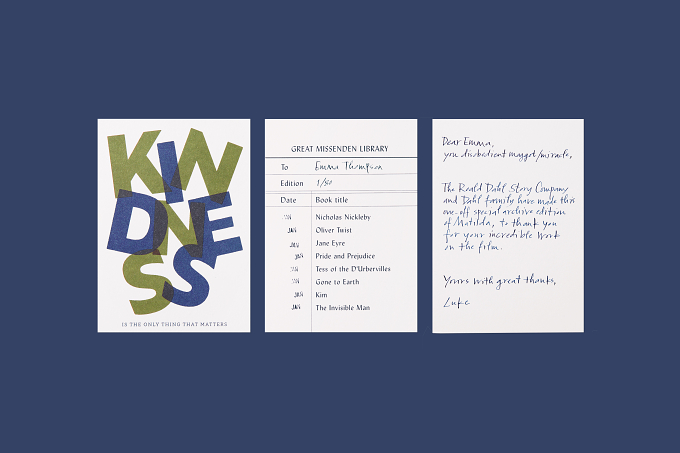 KIN
DNE
SS
IS THE ONLY THING THAT MATTERS
GREAT MISSENDEN LIBRARY
To Emma Thompson
Edition 1/50
Date Book title
JAN Nicholas Nickleby
JAN Oliver Twist
JAN Jane Eyre
JAN Pride and Prejudice
JAN Tess of the D'Urbervilles
JAN Gone to Earth
JAN Kim
JAN The Invisible Man
Dear Emma,
you disobedient maggot/miracle,
The Roald Dahl Story Company
and Dahl family have made this
one-off special archive edition
of Matilda, to thank you
for your incredible work
on the film.
Yours with great thanks,
Luke